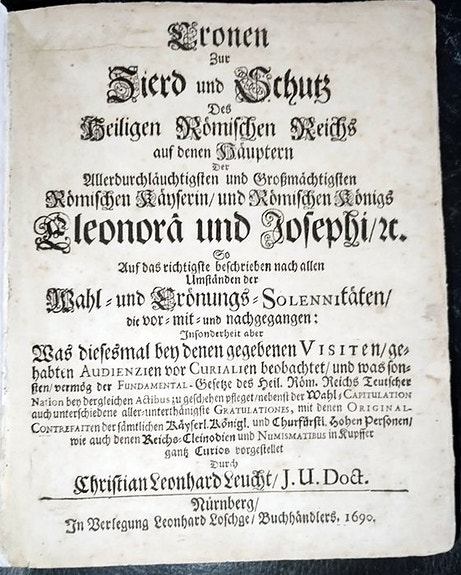 Cronen
Zur
Zierd und Schutz
Des
Heiligen Römischen Reichs
auf denen Häuptern
Der
Allerdurchläuchtigsten und Großmächtigsten
Römischen Käyserin/ und Römischen Königs
Eleonorâ und Josephi/ ꝛc.
So
Auf das richtigste beschrieben nach allen
Umständen der
Wahl- und Crönungs-Solennitäten/
die vor- mit- und nachgegangen:
Insonderheit aber
Was diesesmal bey denen gegebenen Visiten/ ge-
habten Audienzien vor Curialien beobachtet/ und was son-
sten/ vermög der Fundamental-Gesetze des Heil. Röm. Reichs Teutscher
Nation bey dergleichen Actibus zu geschehen pfleget/ nebenst der Wahl-Capitulation
auch unterschiedene aller-unterthänigste Gratulationes, mit denen Original-
Contrefaiten der sämtlichen Käyserl. Königl. und Churfürstl. Hohen Personen/
wie auch denen Reichs-Cleinodien und Numismatibus in Kupffer
gantz Curios vorgestellet
Durch
Christian Leonhard Leucht/ J. U. Doct.
Nürnberg/
In Verlegung Leonhard Loschge/ Buchhändlers. 1690.